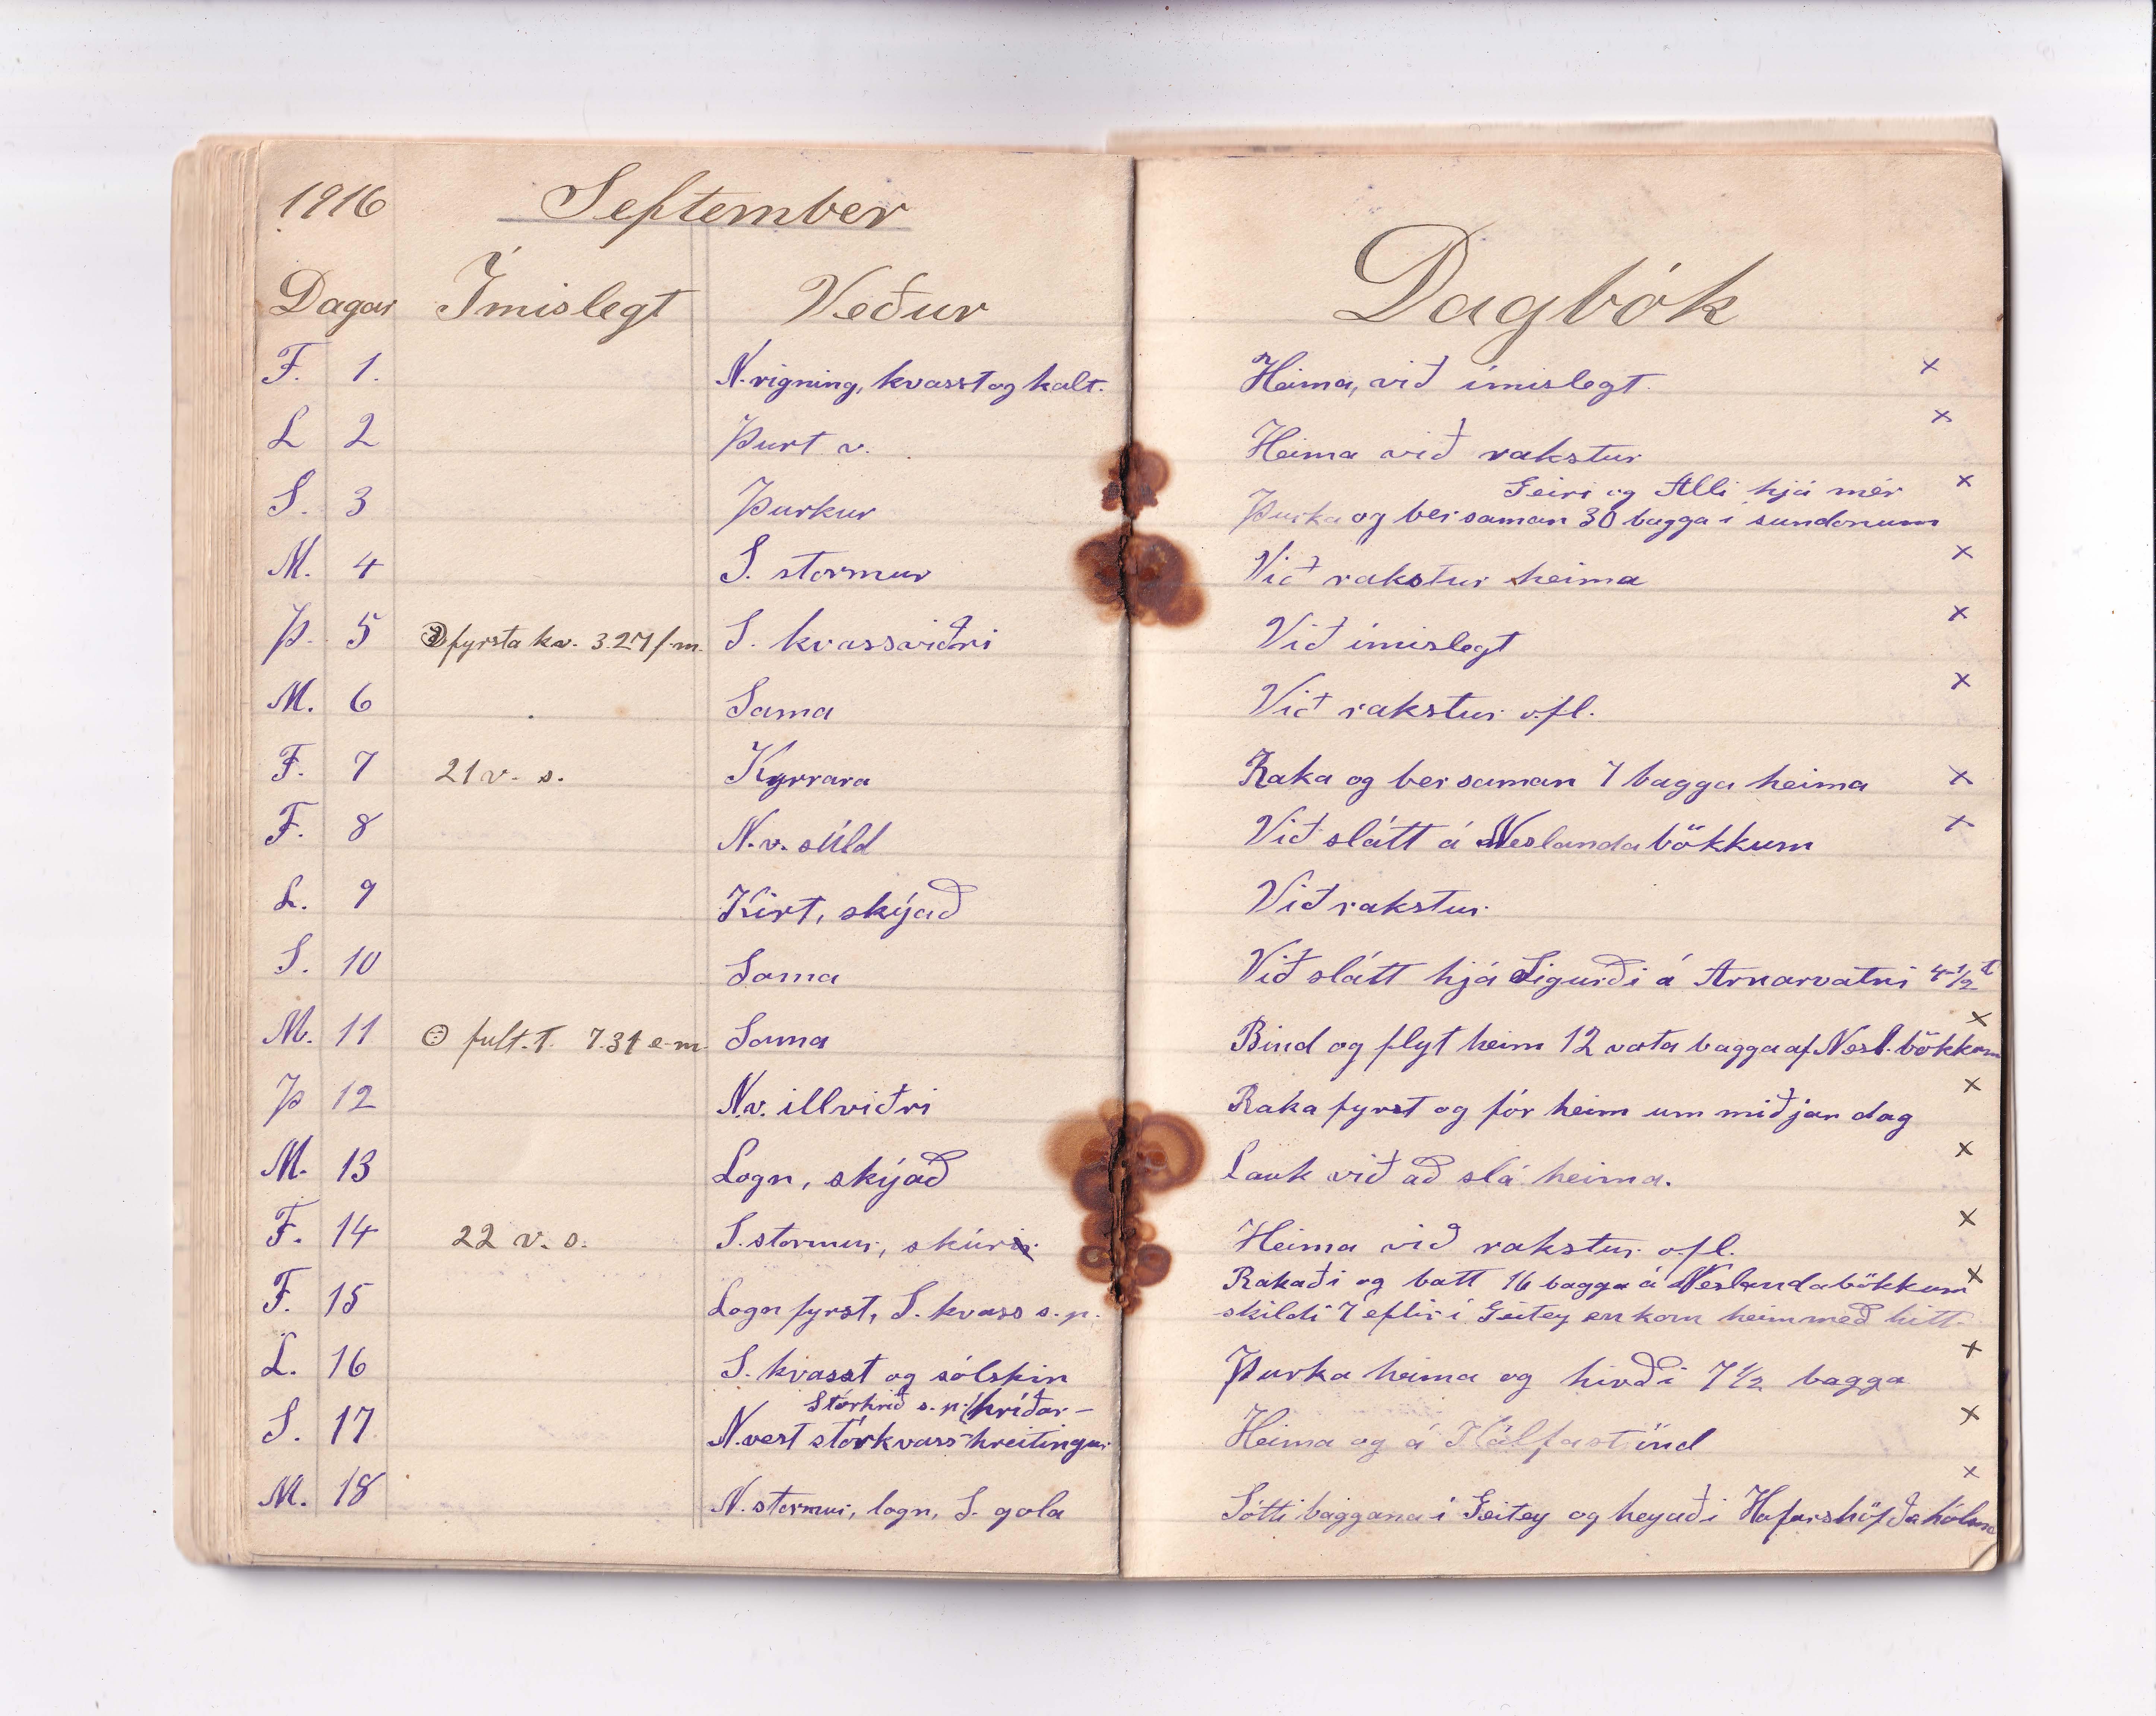 1916 September
Dagar Ímislegt Veður Dagbók
F. 1. N. rigning, kvasst og kalt. Heima, við ímislegt. x
L 2 Þurt v. Heima við rakstur x
Geiri og Alli hjá mér x
S. 3 Þurkur Þurka og ber saman 30 bagga í sundonum
M. 4 S. stormur Við rakstur heima x
Þ. 5 fyrsta kv. 3.27 f.m. S. kvassviðri Við ímislegt x
M. 6 Sama Við rakstur o.fl. x
F. 7 21 v. s. Kyrrara Raka og ber saman 7 bagga heima x
F. 8 N.v. súld Við slátt á Neslandabökkum x
L. 9 Kirt, skýjað Við rakstur
S. 10 Sama Við slátt hjá Sigurði á Arnarvatni 4-½ t
M. 11 fult. t. 7.31 e.m. Sama Bind og flyt heim 12 vota bagga af Nesl. bökkum x
Þ 12 N.v. illviðri Raka fyrst og fór heim um miðjan dag x
M. 13 Logn, skýjað Lauk við að slá heima. x
F. 14 22 v. s. S. stormur, skúrir Heima við rakstur o.fl. x
Rakaði og batt 16 bagga á Neslandabökkum x
F. 15 Logn fyrst, S. kvass s.p. skildi 7 eftir í Geitey en kom heim með hitt.
L. 16 S. kvasst og sólskin Þurka heima og hirði 7½ bagga x
Stórhríð s.p. hríðar-
S. 17 N.vest stórkvass hreitingur Heima og á Kálfaströnd x
M. 18 N. stormur, logn, S. gola Sótti baggana í Geitey og heyaði í Hafurshöfðahólma x